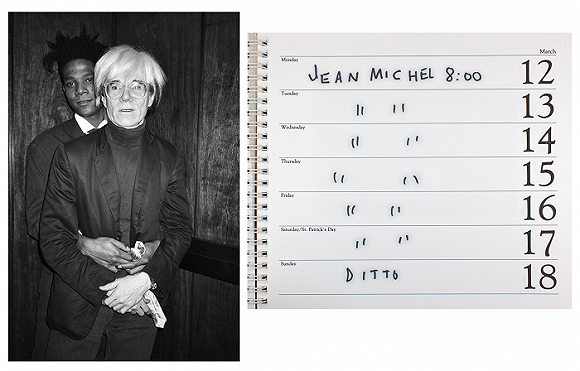 March
Monday
JEAN MICHEL 8:00
12
Tuesday
" "
13
Wednesday
" "
14
Thursday
" "
15
Friday
" "
16
Saturday/St. Patrick's Day
" "
17
Sunday
DITTO
18